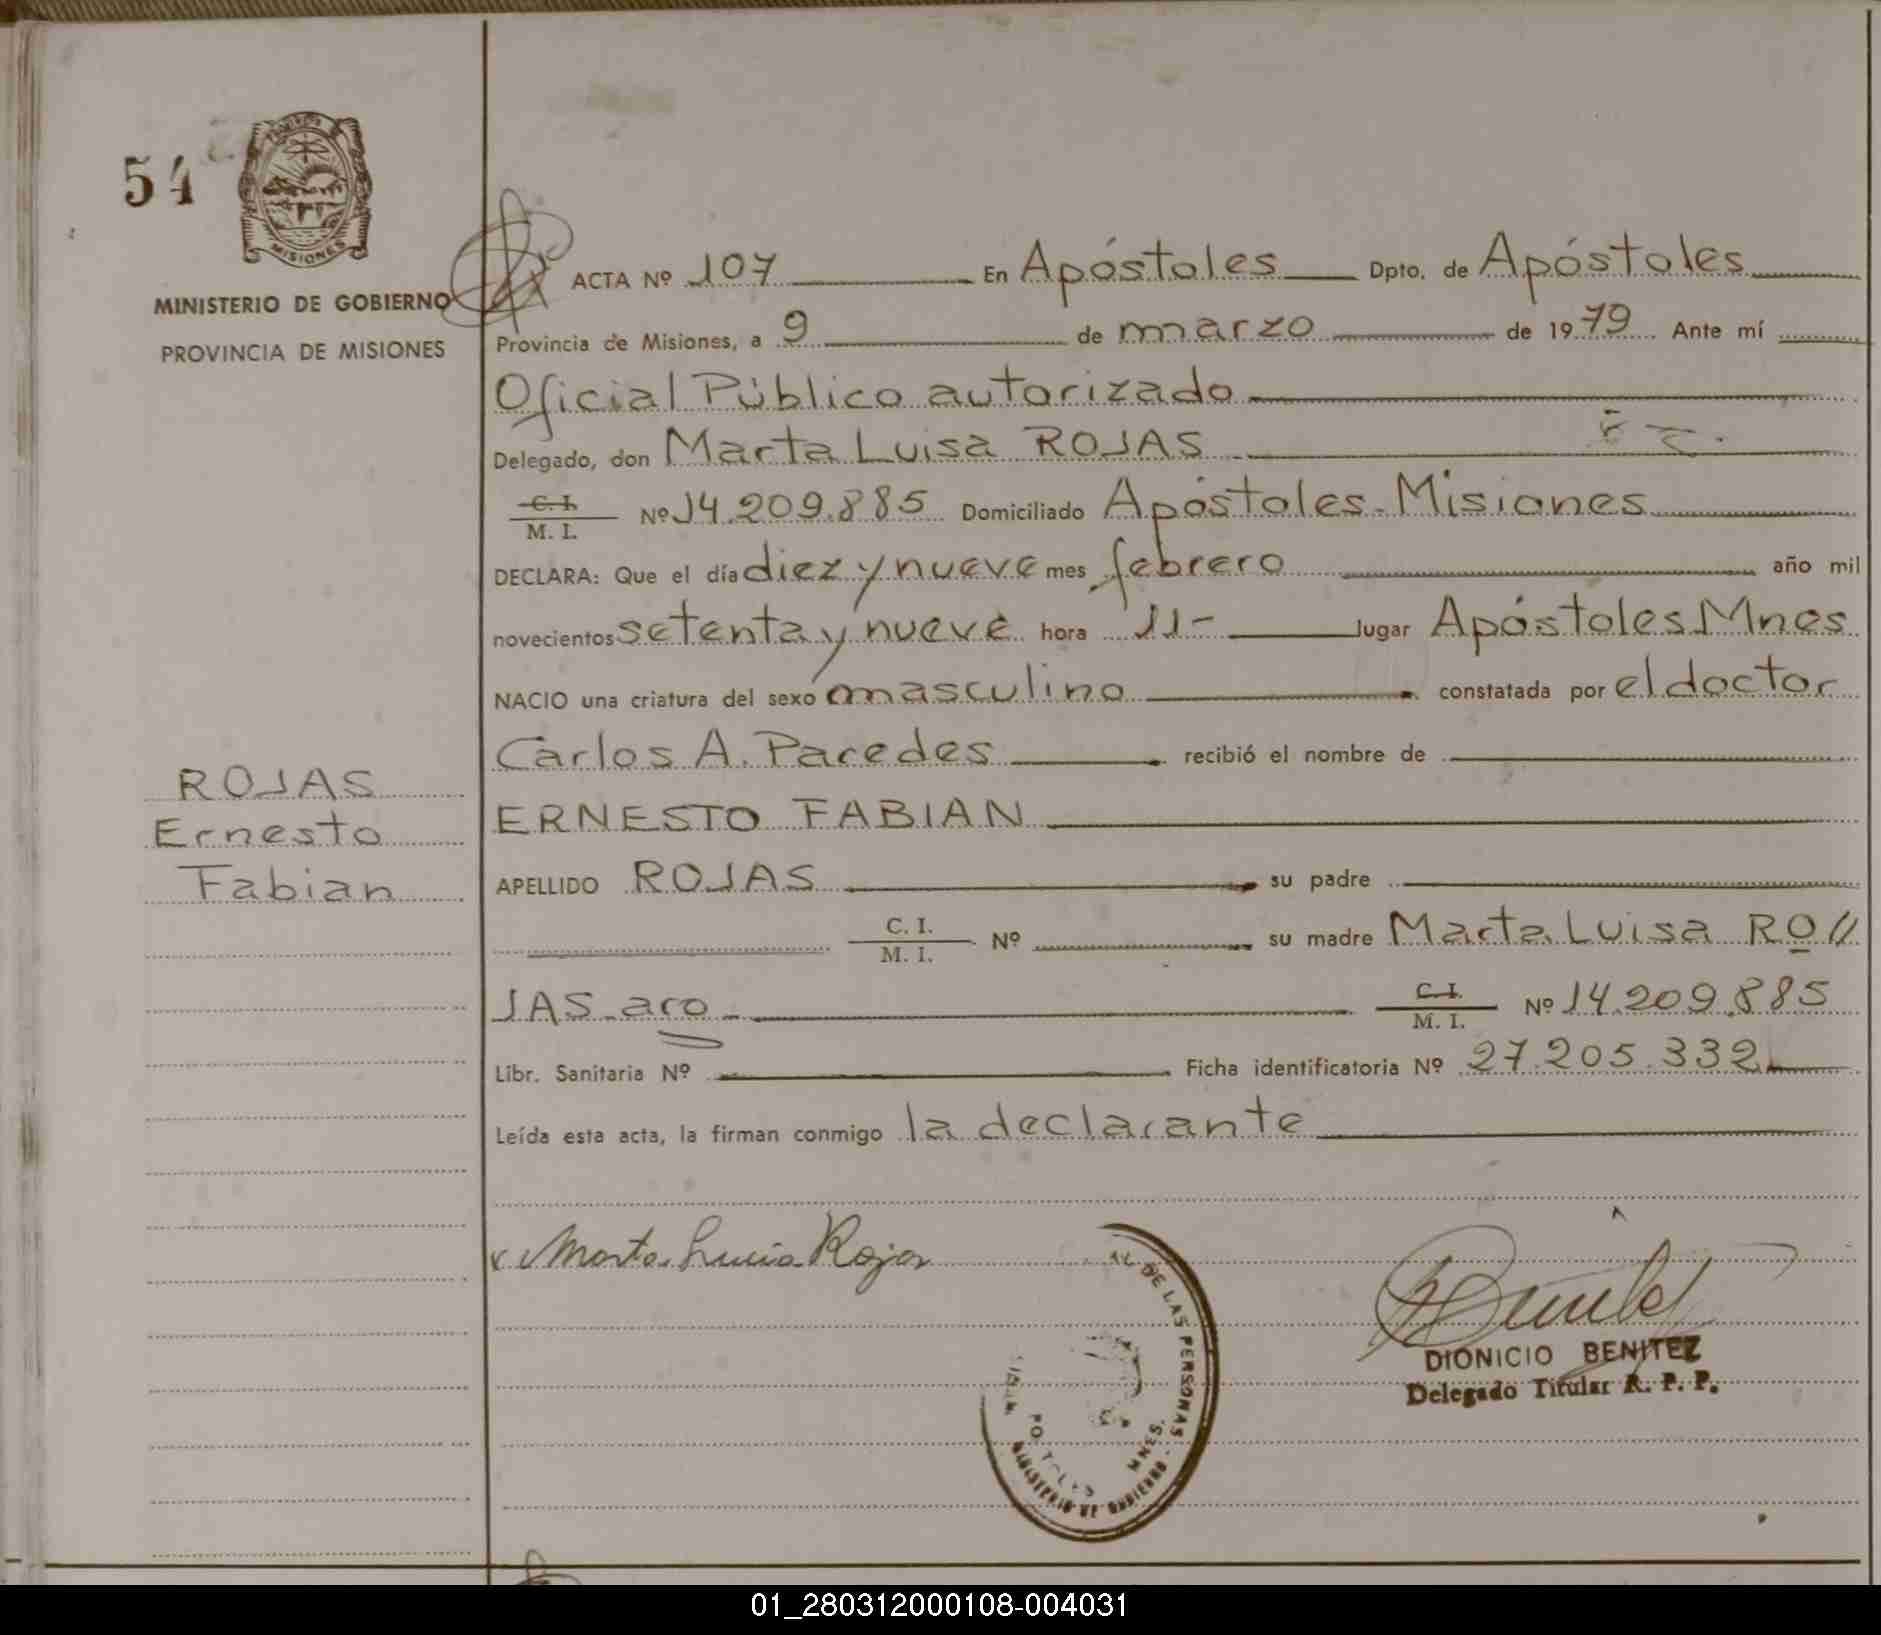 54
PROVINCIA
MISIONES
MINISTERIO DE GOBIERNO
PROVINCIA DE MISIONES
ROJAS
Ernesto
Fabian
ACTA Nº 107 En Apóstoles Dpto. de Apóstoles
Provincia de Misiones, a 9 de marzo de 1979 Ante mí
Oficial Público autorizado
Delegado, don Marta Luisa ROJAS
C. I.
M. I. Nº 14.209.885 Domiciliado Apóstoles - Misiones
DECLARA: Que el día diez y nueve mes febrero año mil
novecientos setenta y nueve hora 11- lugar Apóstoles Mnes
NACIO una criatura del sexo masculino constatada por el doctor
Carlos A. Paredes recibió el nombre de
ERNESTO FABIAN
APELLIDO ROJAS su padre
C. I.
M. I. Nº su madre Marta Luisa RO//
JAS - aro - C. I.
M. I. Nº 14.209.885
Libr. Sanitaria Nº Ficha identificatoria Nº 27.205.332
Leída esta acta, la firman conmigo la declarante
Marta Luisa Rojas
AL DE LAS PERSONAS
MINISTERIO DE GOBIERNO
MNES.
DIONICIO BENITEZ
Delegado Titular R. P. P.
01_280312000108-004031